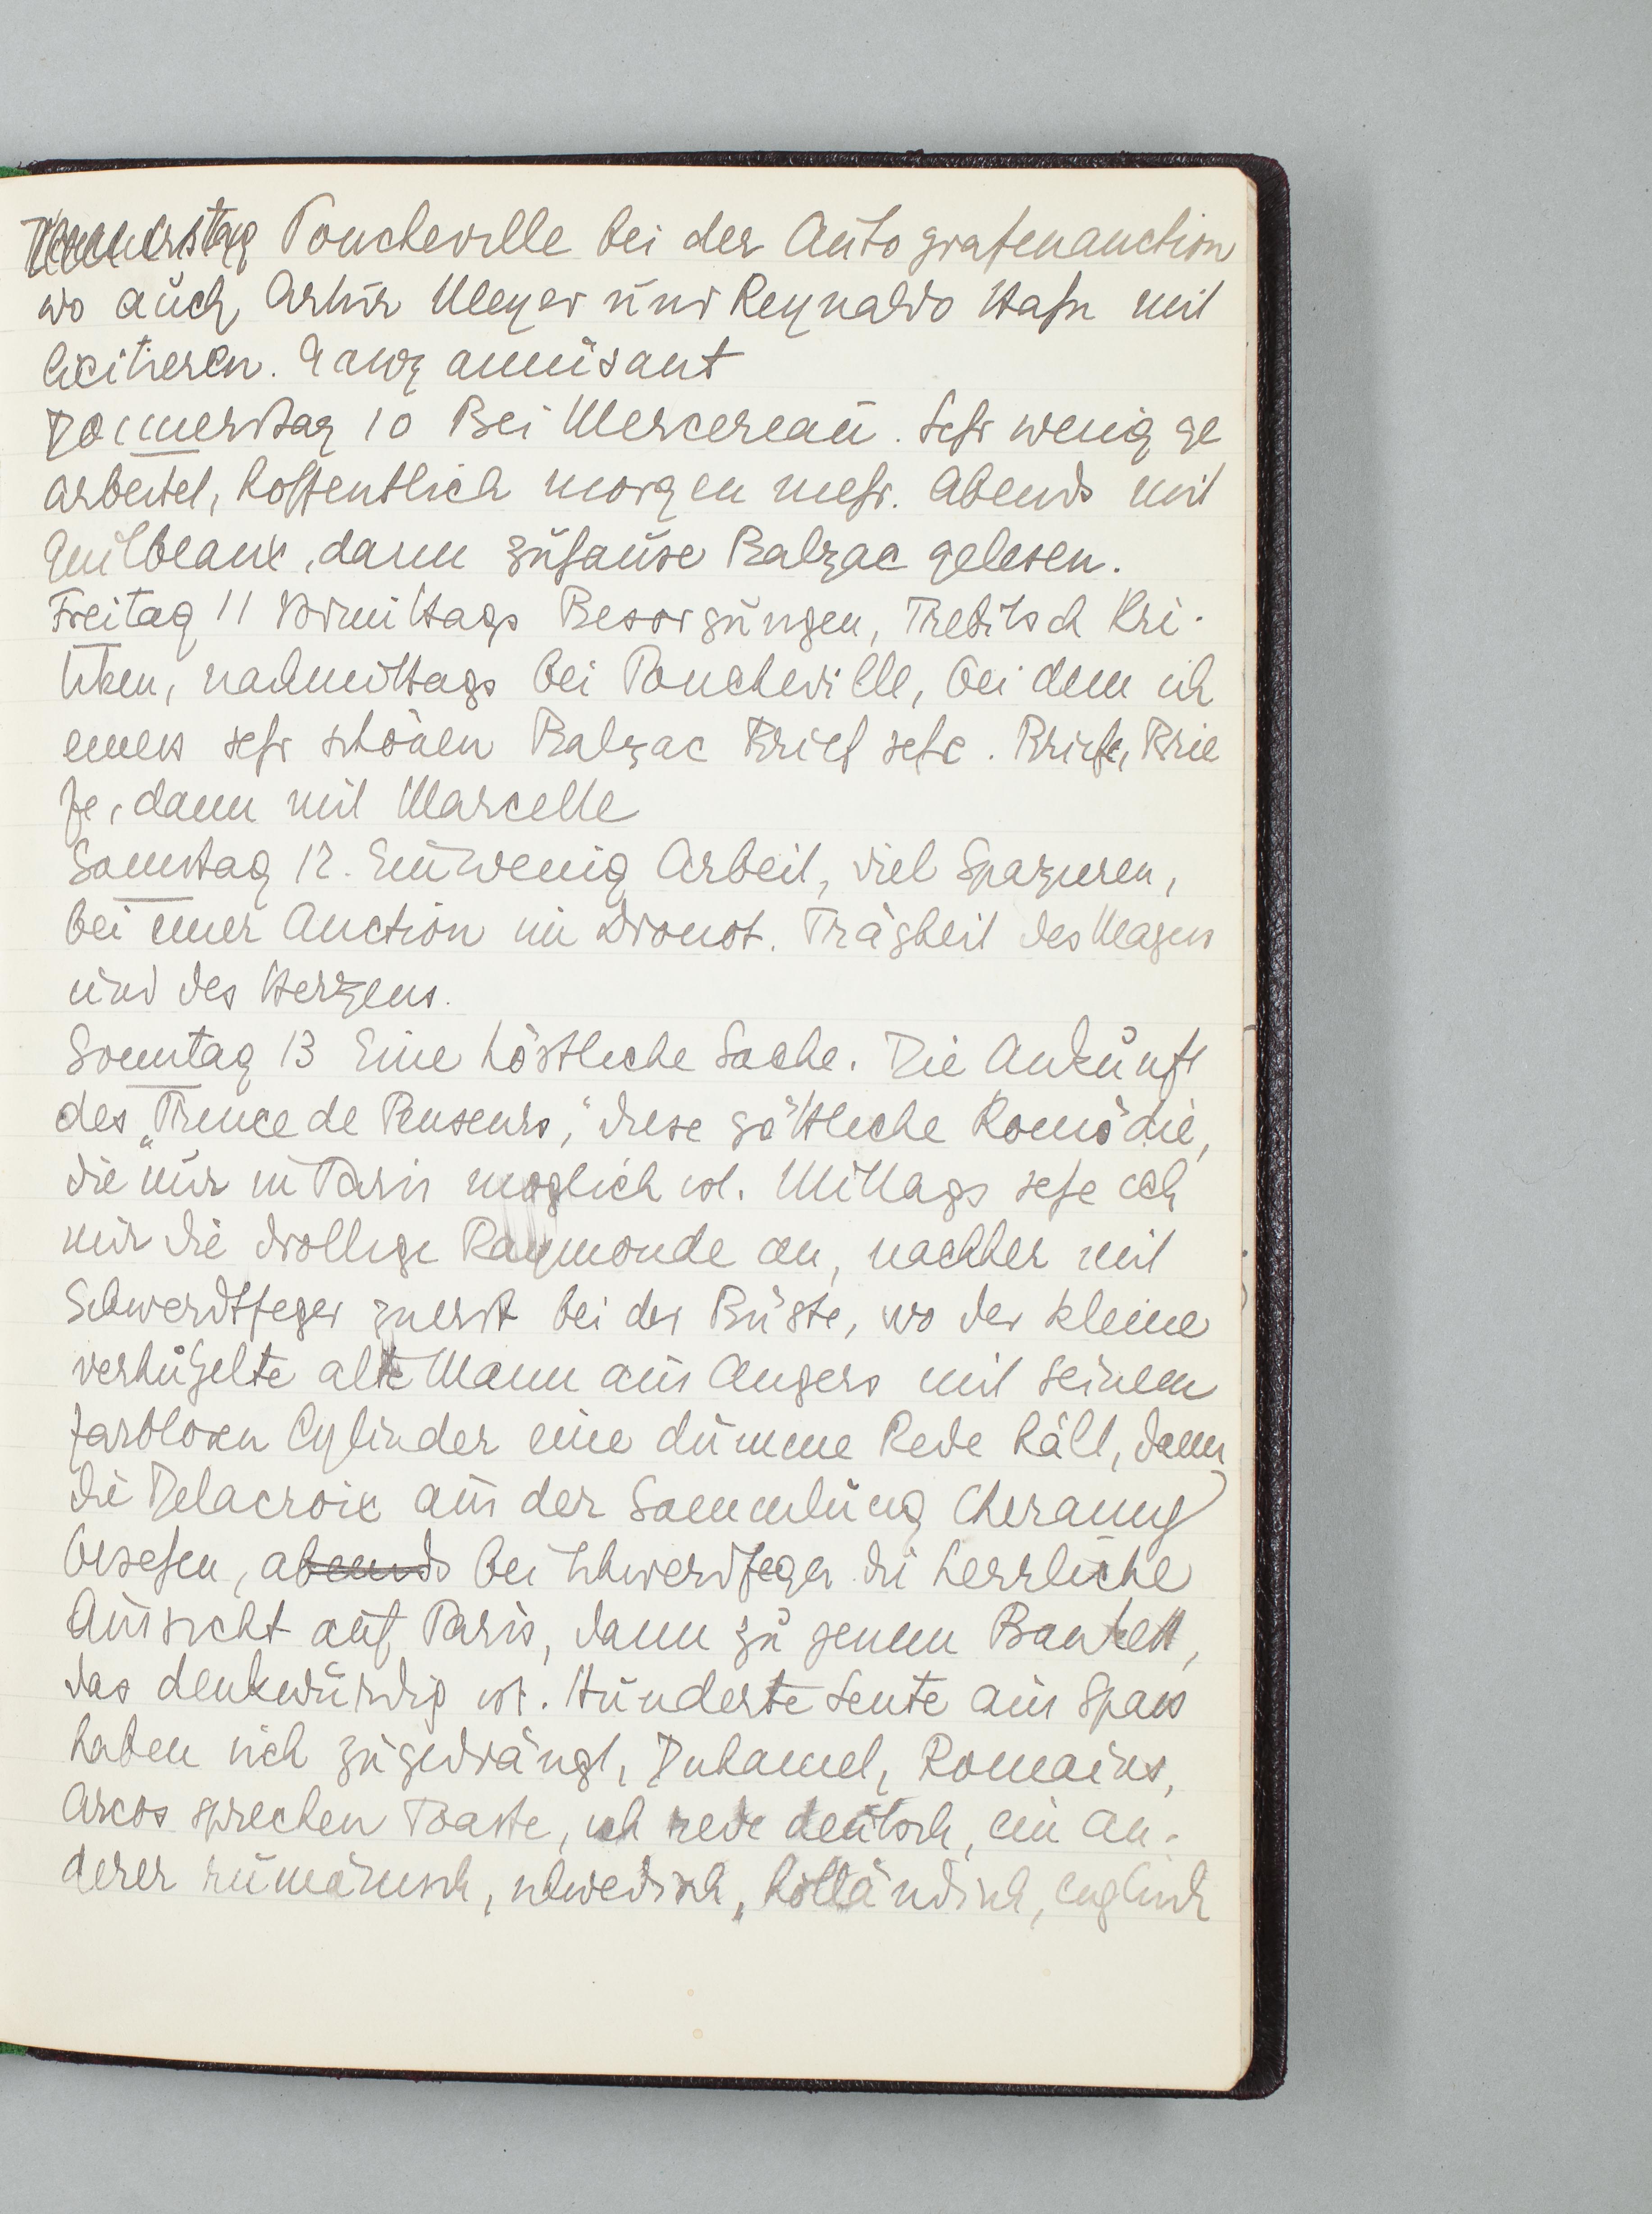 Donnerstag Poncheville bei der Autografenauction
wo auch Artur Meyer und Reynaldo Hahn mit
licitieren. Ganz amüsant
Donnerstag 10 Bei Mercereau. Sehr wenig ge
arbeitet, hoffentlich morgen mehr. Abends mit
Guilbeaux, dann zuhause Balzac gelesen.
Freitag 11 Vormittags Besorgungen, Trebitsch Kri-
tiken, nachmittags bei Poncheville, bei dem ich
einen sehr schönen Balzac Brief sehe. Briefe, Brie
fe, dann mit Marcelle
Samstag 12. Ein wenig Arbeit, viel Spazieren,
bei einer Auction im Drouot. Trägheit des Magens
und des Herzens.
Sonntag 13 Eine köstliche Sache. Die Ankunft
des „Prince de Penseurs," diese göttliche Komödie,
die nur in Paris möglich ist. Mittags sehe ich
mir die drollige Raymonde an, nachher mit
Schwerdtfeger zuerst bei der Büste, wo der kleine
verhutzelte alte Mann aus Angers mit seinem
farblosen Cylinder eine dumme Rede hält, dann
die Delacroix aus der Sammlung Cheramy
besehen, abends bei Schwerdfeger die herrliche
Aussicht auf Paris, dann zu jenem Bankett,
das denkwürdig ist. Hunderte Leute aus Spass
haben sich zugedrängt, Duhamel, Romains,
Arcos sprechen Toaste, ich rede deutsch, ein an-
derer rumänisch, schwedisch, holländisch, englisch